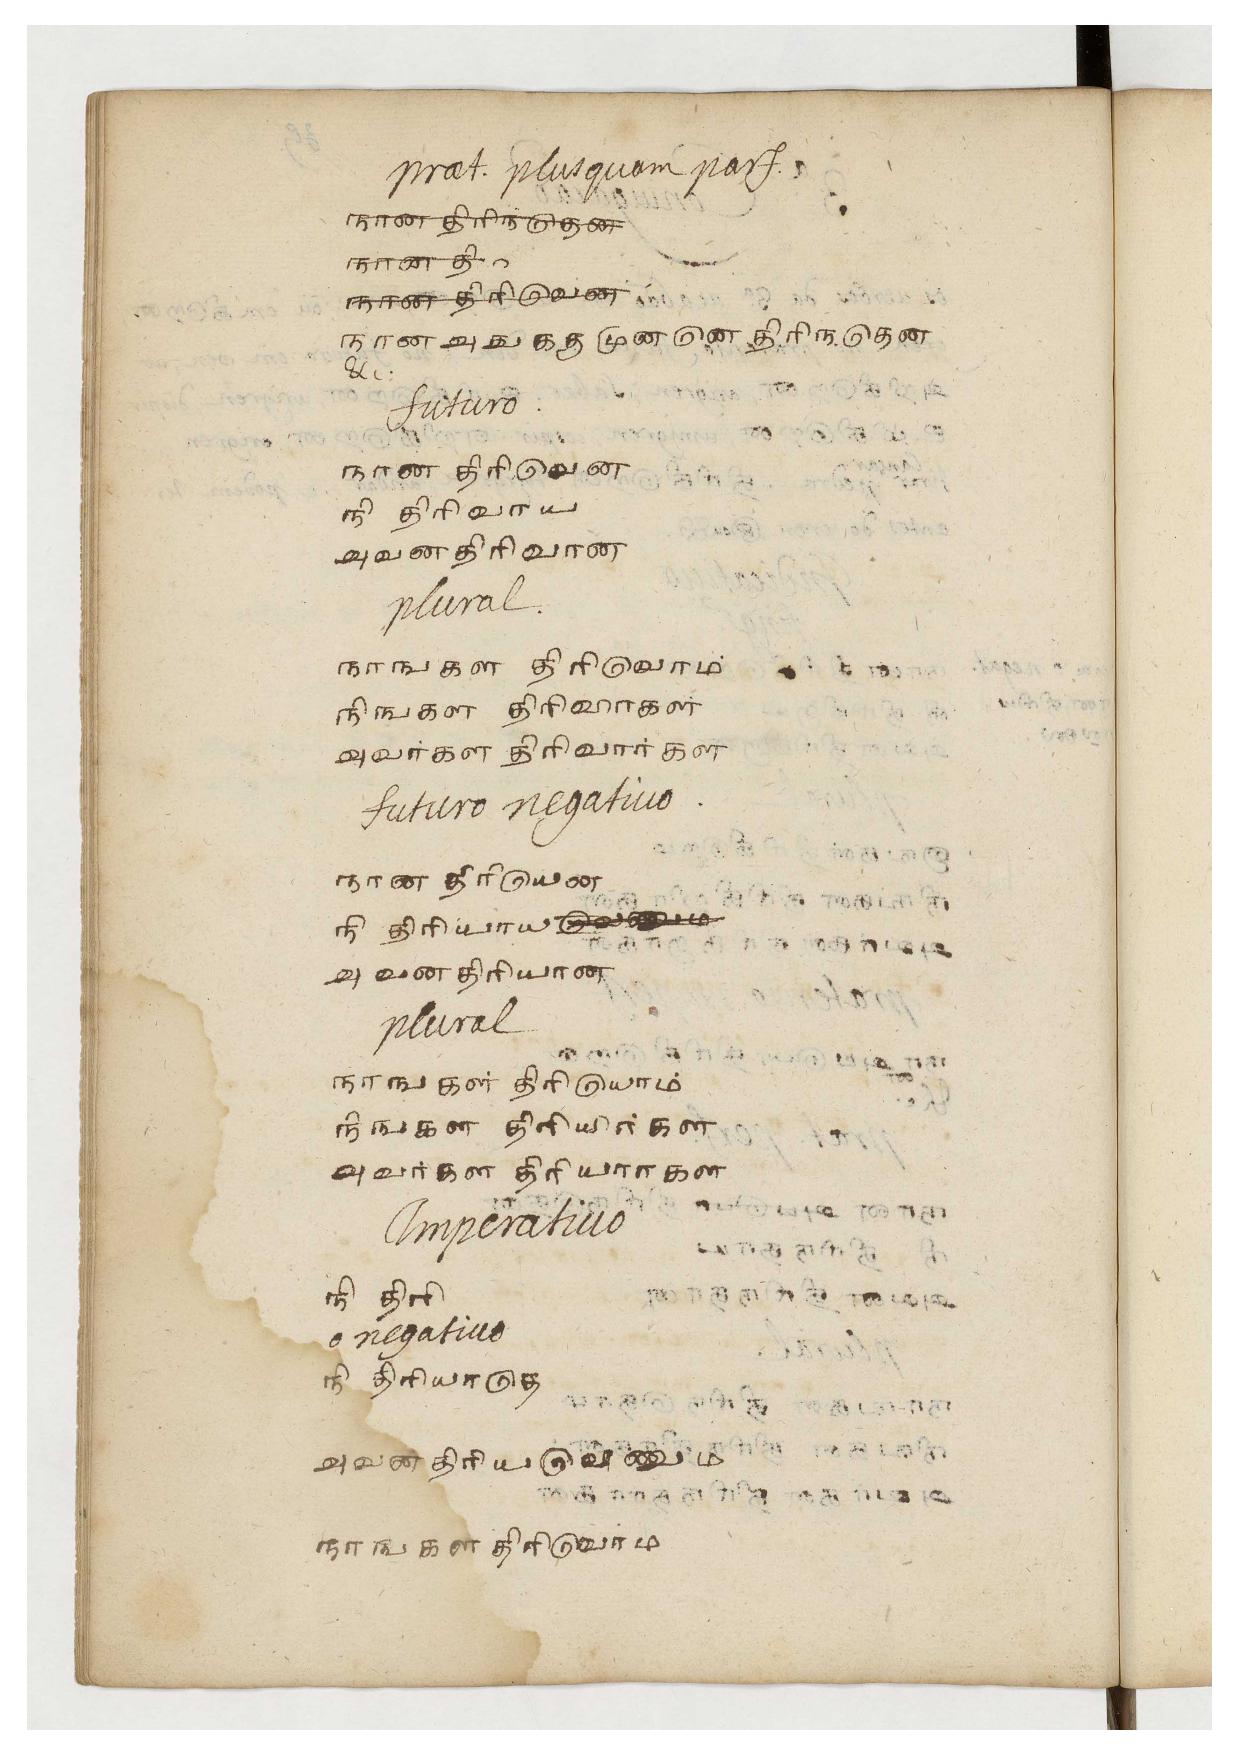 præt. plusquam parf.
நான திரிநடுதன
நான தி
நான திரிடுவன
நான அவகத முனடுன திரிநடுதன
&c:
futuro.
நான திரிடுவன
நி திரிவாய
அவனதிரிவான
plural.
நாஙகள திரிடுவாம்
நிஙகள திரிவாகள்
அவர்கள திரிவார்கள
futuro negatiuo.
நான திரிடுயன
நி திரியாய
அவனதிரியான
plural
நாஙகள் திரிடுயாம்
நிஙகள திரியிர்கள
அவர்கள திரியாரகள
Imperatiuo
நி திரி
o negatiuo
நி திரியாடுத
அவனதிரியடுவணடும
நாஙகளதிரிடுவாம